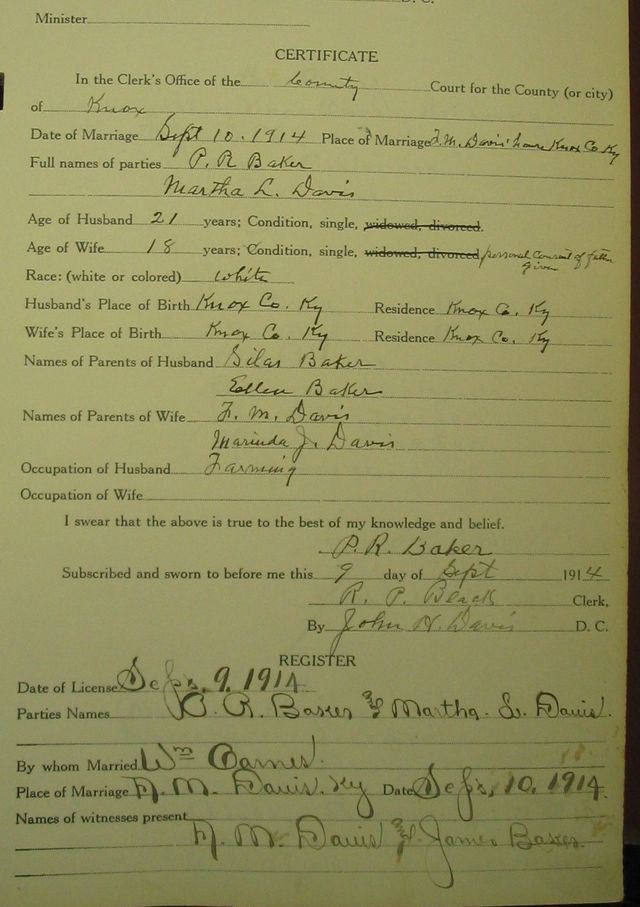 D. C.
Minister
CERTIFICATE
In the Clerk's Office of the County Court for the County (or city)
of Knox
Date of Marriage Sept 10. 1914 Place of Marriage F. M. Davis' house Knox Co Ky
Full names of parties P. R Baker
Martha L. Davis
Age of Husband 21 years; Condition, single, widowed, divorced.
Age of Wife 18 years; Condition, single, widowed, divorced personal Consent of father
given
Race: (white or colored) white
Husband's Place of Birth Knox Co. Ky Residence Knox Co. Ky
Wife's Place of Birth Knox Co. Ky Residence Knox Co. Ky
Names of Parents of Husband Silas Baker
Ellen Baker
Names of Parents of Wife F. M. Davis
Marinda J. Davis
Occupation of Husband Farming
Occupation of Wife
I swear that the above is true to the best of my knowledge and belief.
P. R. Baker
Subscribed and sworn to before me this 9 day of Sept 1914
R. P. Black Clerk,
By John H. Davis D. C.
REGISTER
Date of License Sept. 9. 1914
Parties Names P. R. Baker & Martha. L. Davis.
By whom Married Wm Carnes.
Place of Marriage F. M. Davis. Ky Date Sept, 10, 1914.
Names of witnesses present
F. M. Davis & James Baker.